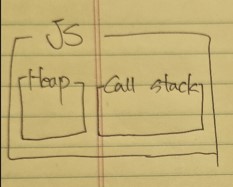 JS
Heap
Call stack